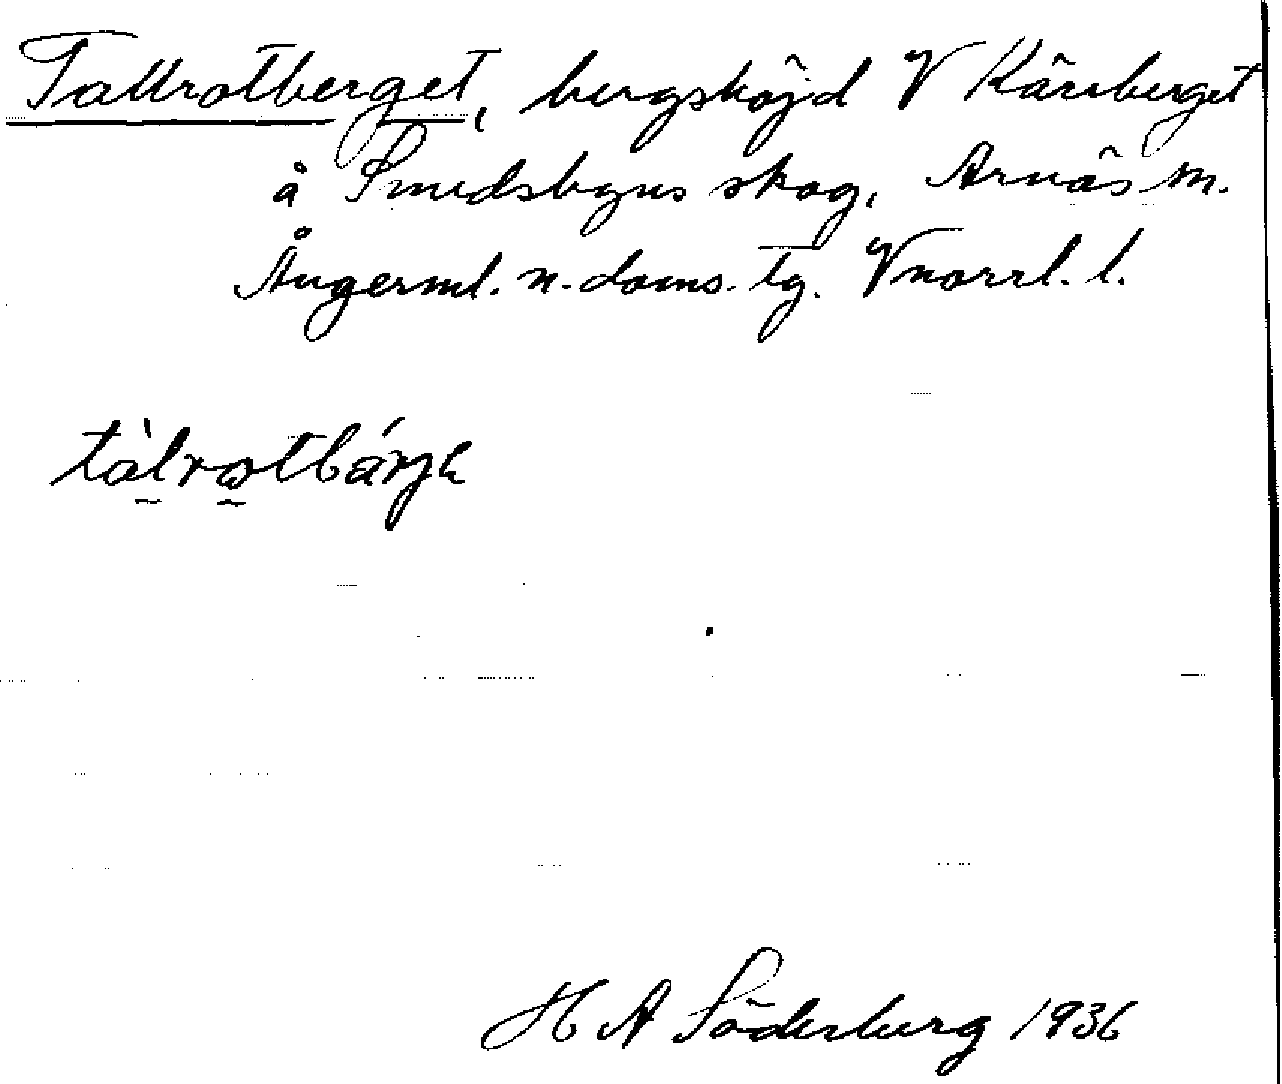 Tallrotberget, bergshöjd V Kärrberget
å Smedsbyns skog, Arnäs sn.
Ångerml. n. doms. tg. Vnorrl. l.
tàlrotbárjɛ
H A Söderberg 1936